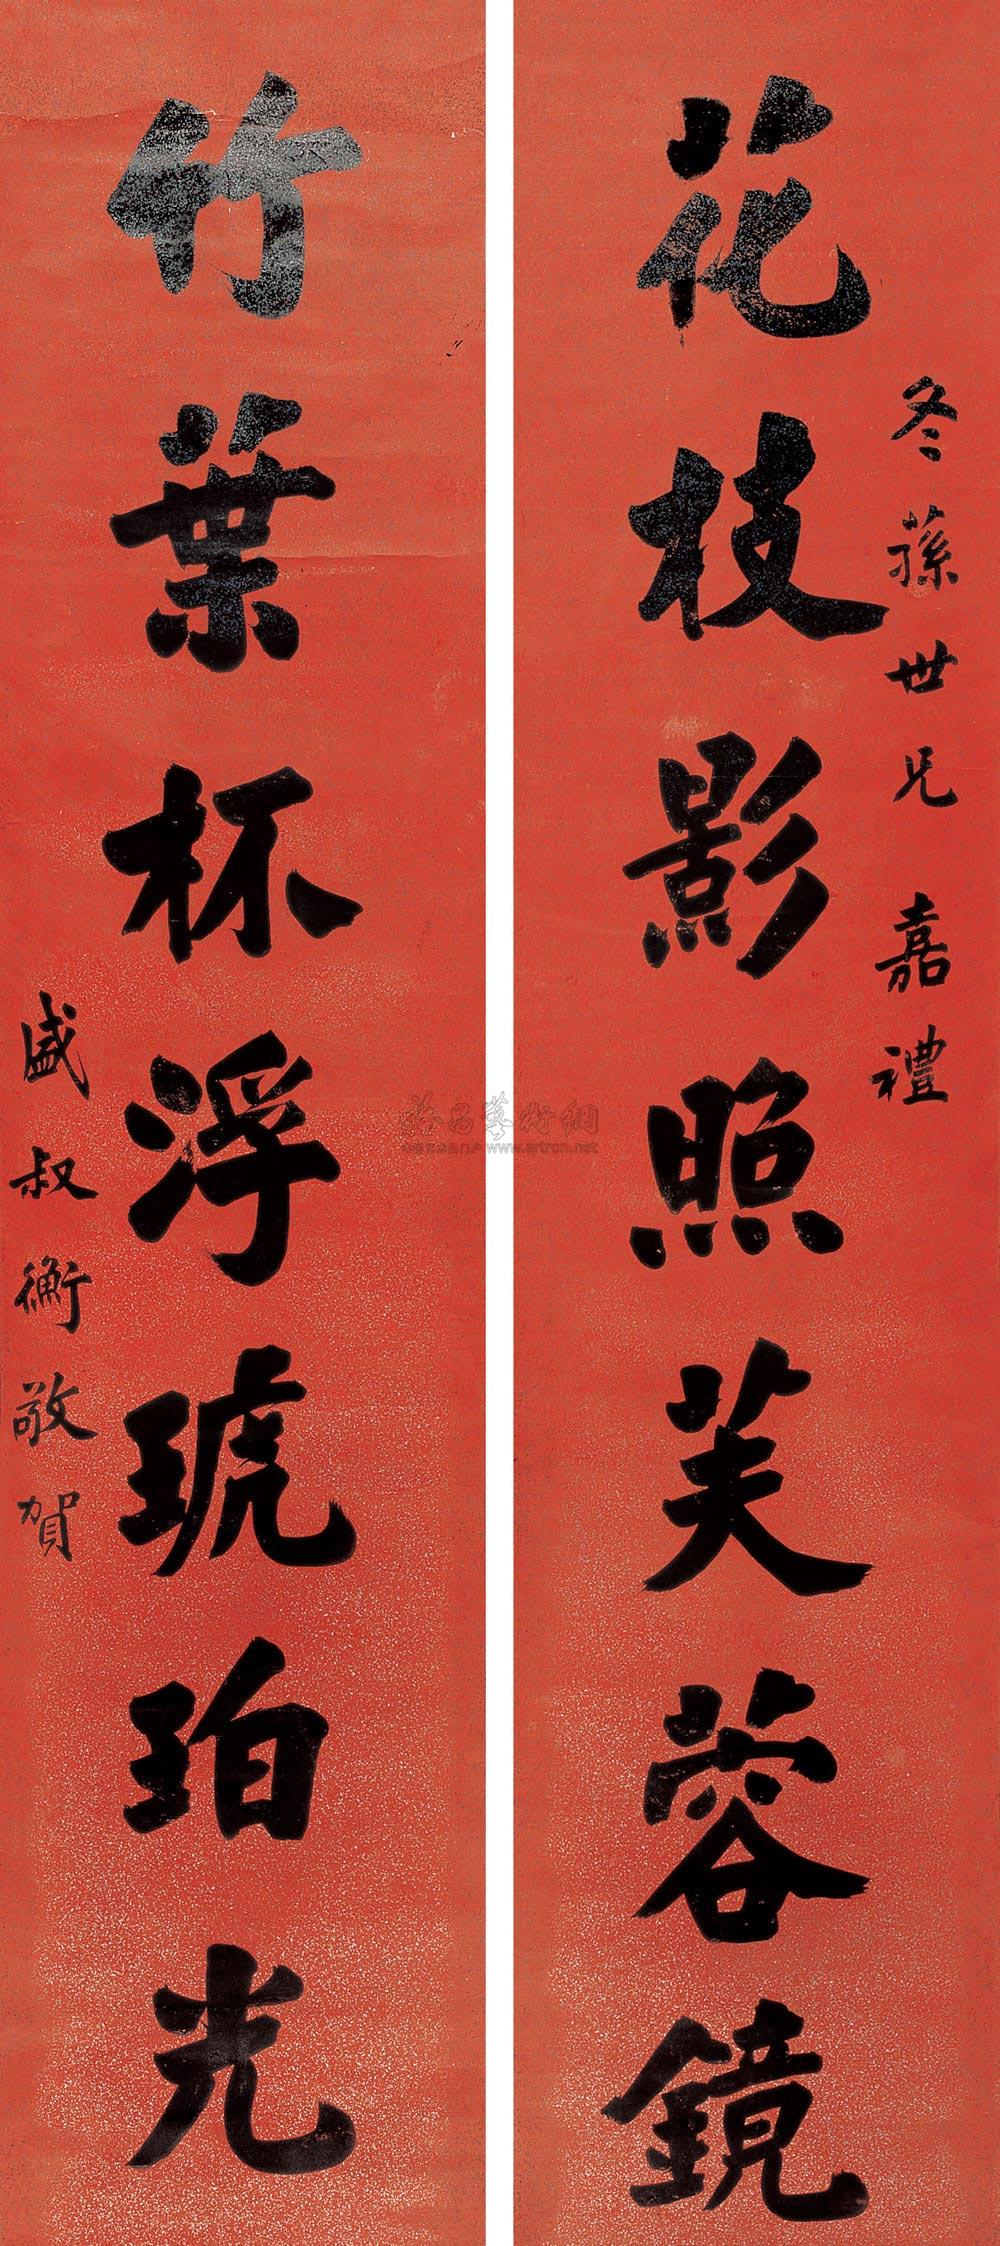 花枝影照芙蓉鏡
冬蓀世兄嘉禮
竹葉杯浮琥珀光
盛叔衡敬賀
www.artron.net